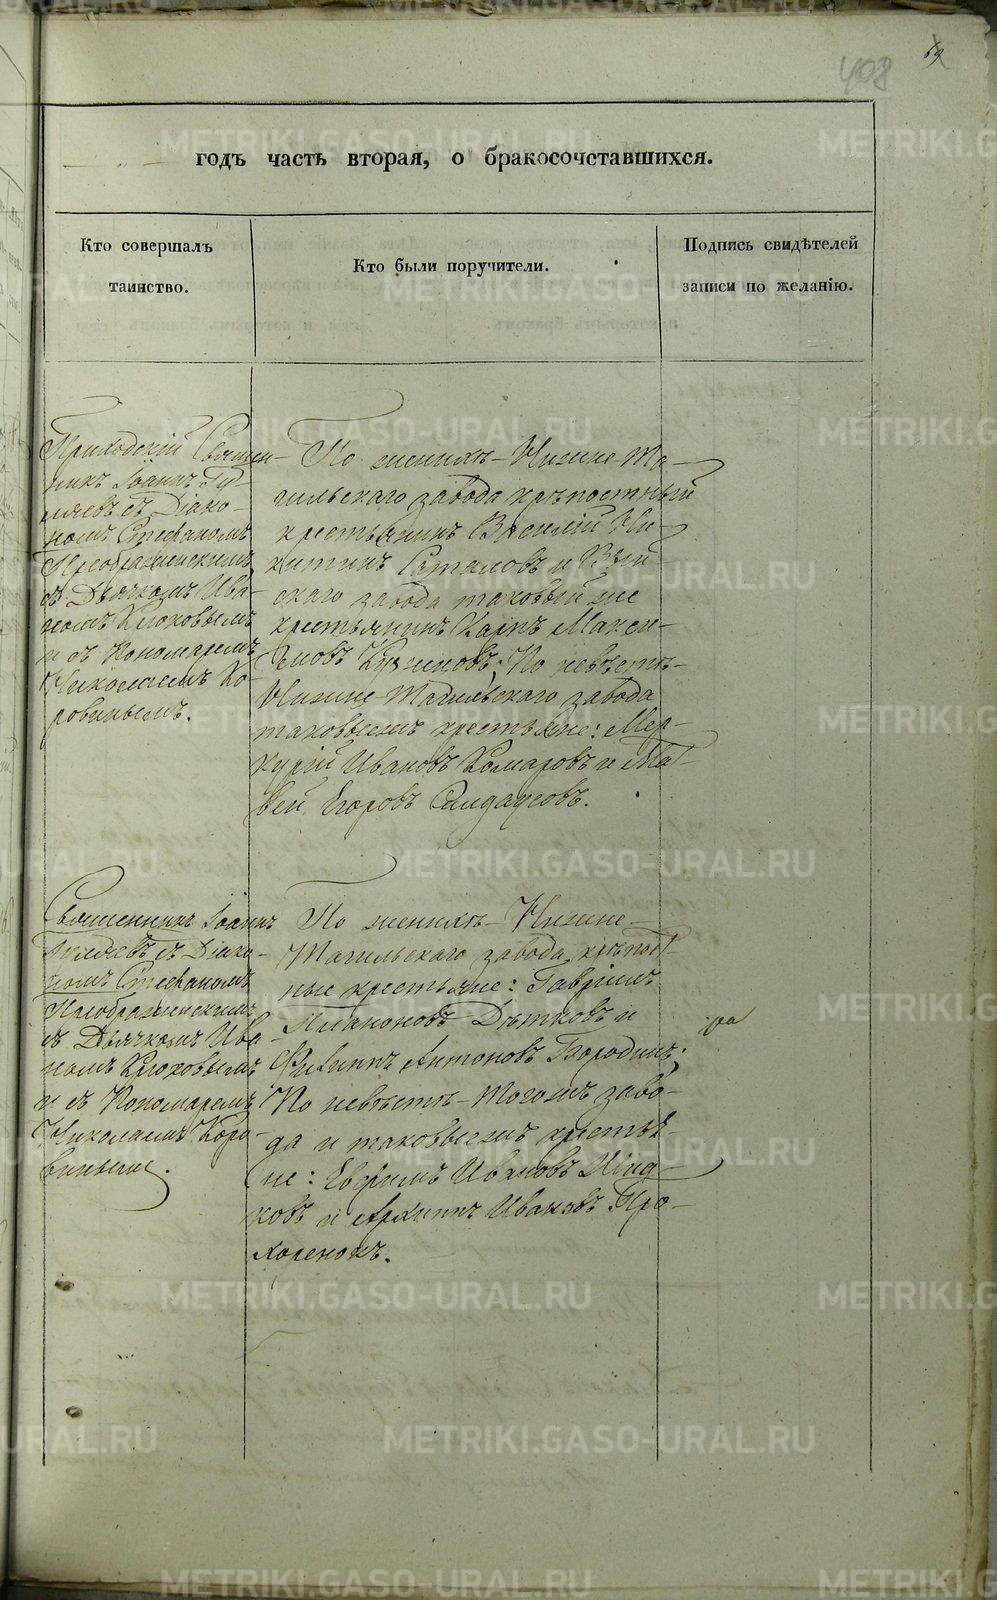 408
69
годъ часть вторая, о бракосочетавшихся.
Кто совершалъ
таинство.
Кто были поручители.
Подпись свидѣтелей
записи по желанію.
Приходскій Священ-
никъ Іоаннъ
съ Діако-
номъ Стефаномъ
Преображенскимъ
съ Дьячкомъ Ива-
номъ Клюковымъ
и съ Пономаремъ
Николаемъ Ко-
ровинымъ.
По женихѣ – Нижне Та-
гильскаго завода крѣпостный
крестьянинъ Василій Ни-
китинъ и Вый-
скаго завода таковый же
крестьянинъ Карпъ Макси-
мовъ По невѣстѣ –
Нижне Тагильскаго завода
таковыежъ крестьяне: Мер-
курій Ивановъ Комаровъ и Мат-
вей Егоровъ
Священникъ Іоаннъ
съ Діако-
номъ Стефаномъ
Преображенскимъ
съ Дьячкомъ Ива-
номъ Клюковымъ
и съ Пономаремъ
Николаемъ Коро-
винымъ.
По женихѣ – Нижне-
Тагильскаго завода крѣпост-
ные крестьяне: Гаврiилъ
Дѣтковъ и
Филиппъ Антоновъ Бородинъ;
По невѣстѣ – тогожъ заво-
да и таковыежъ крестья-
не: Ефимъ Ивановъ
ковъ и Архиппъ Ивановъ Про-
хоренокъ.
METRIKI.GASO-URAL.RU